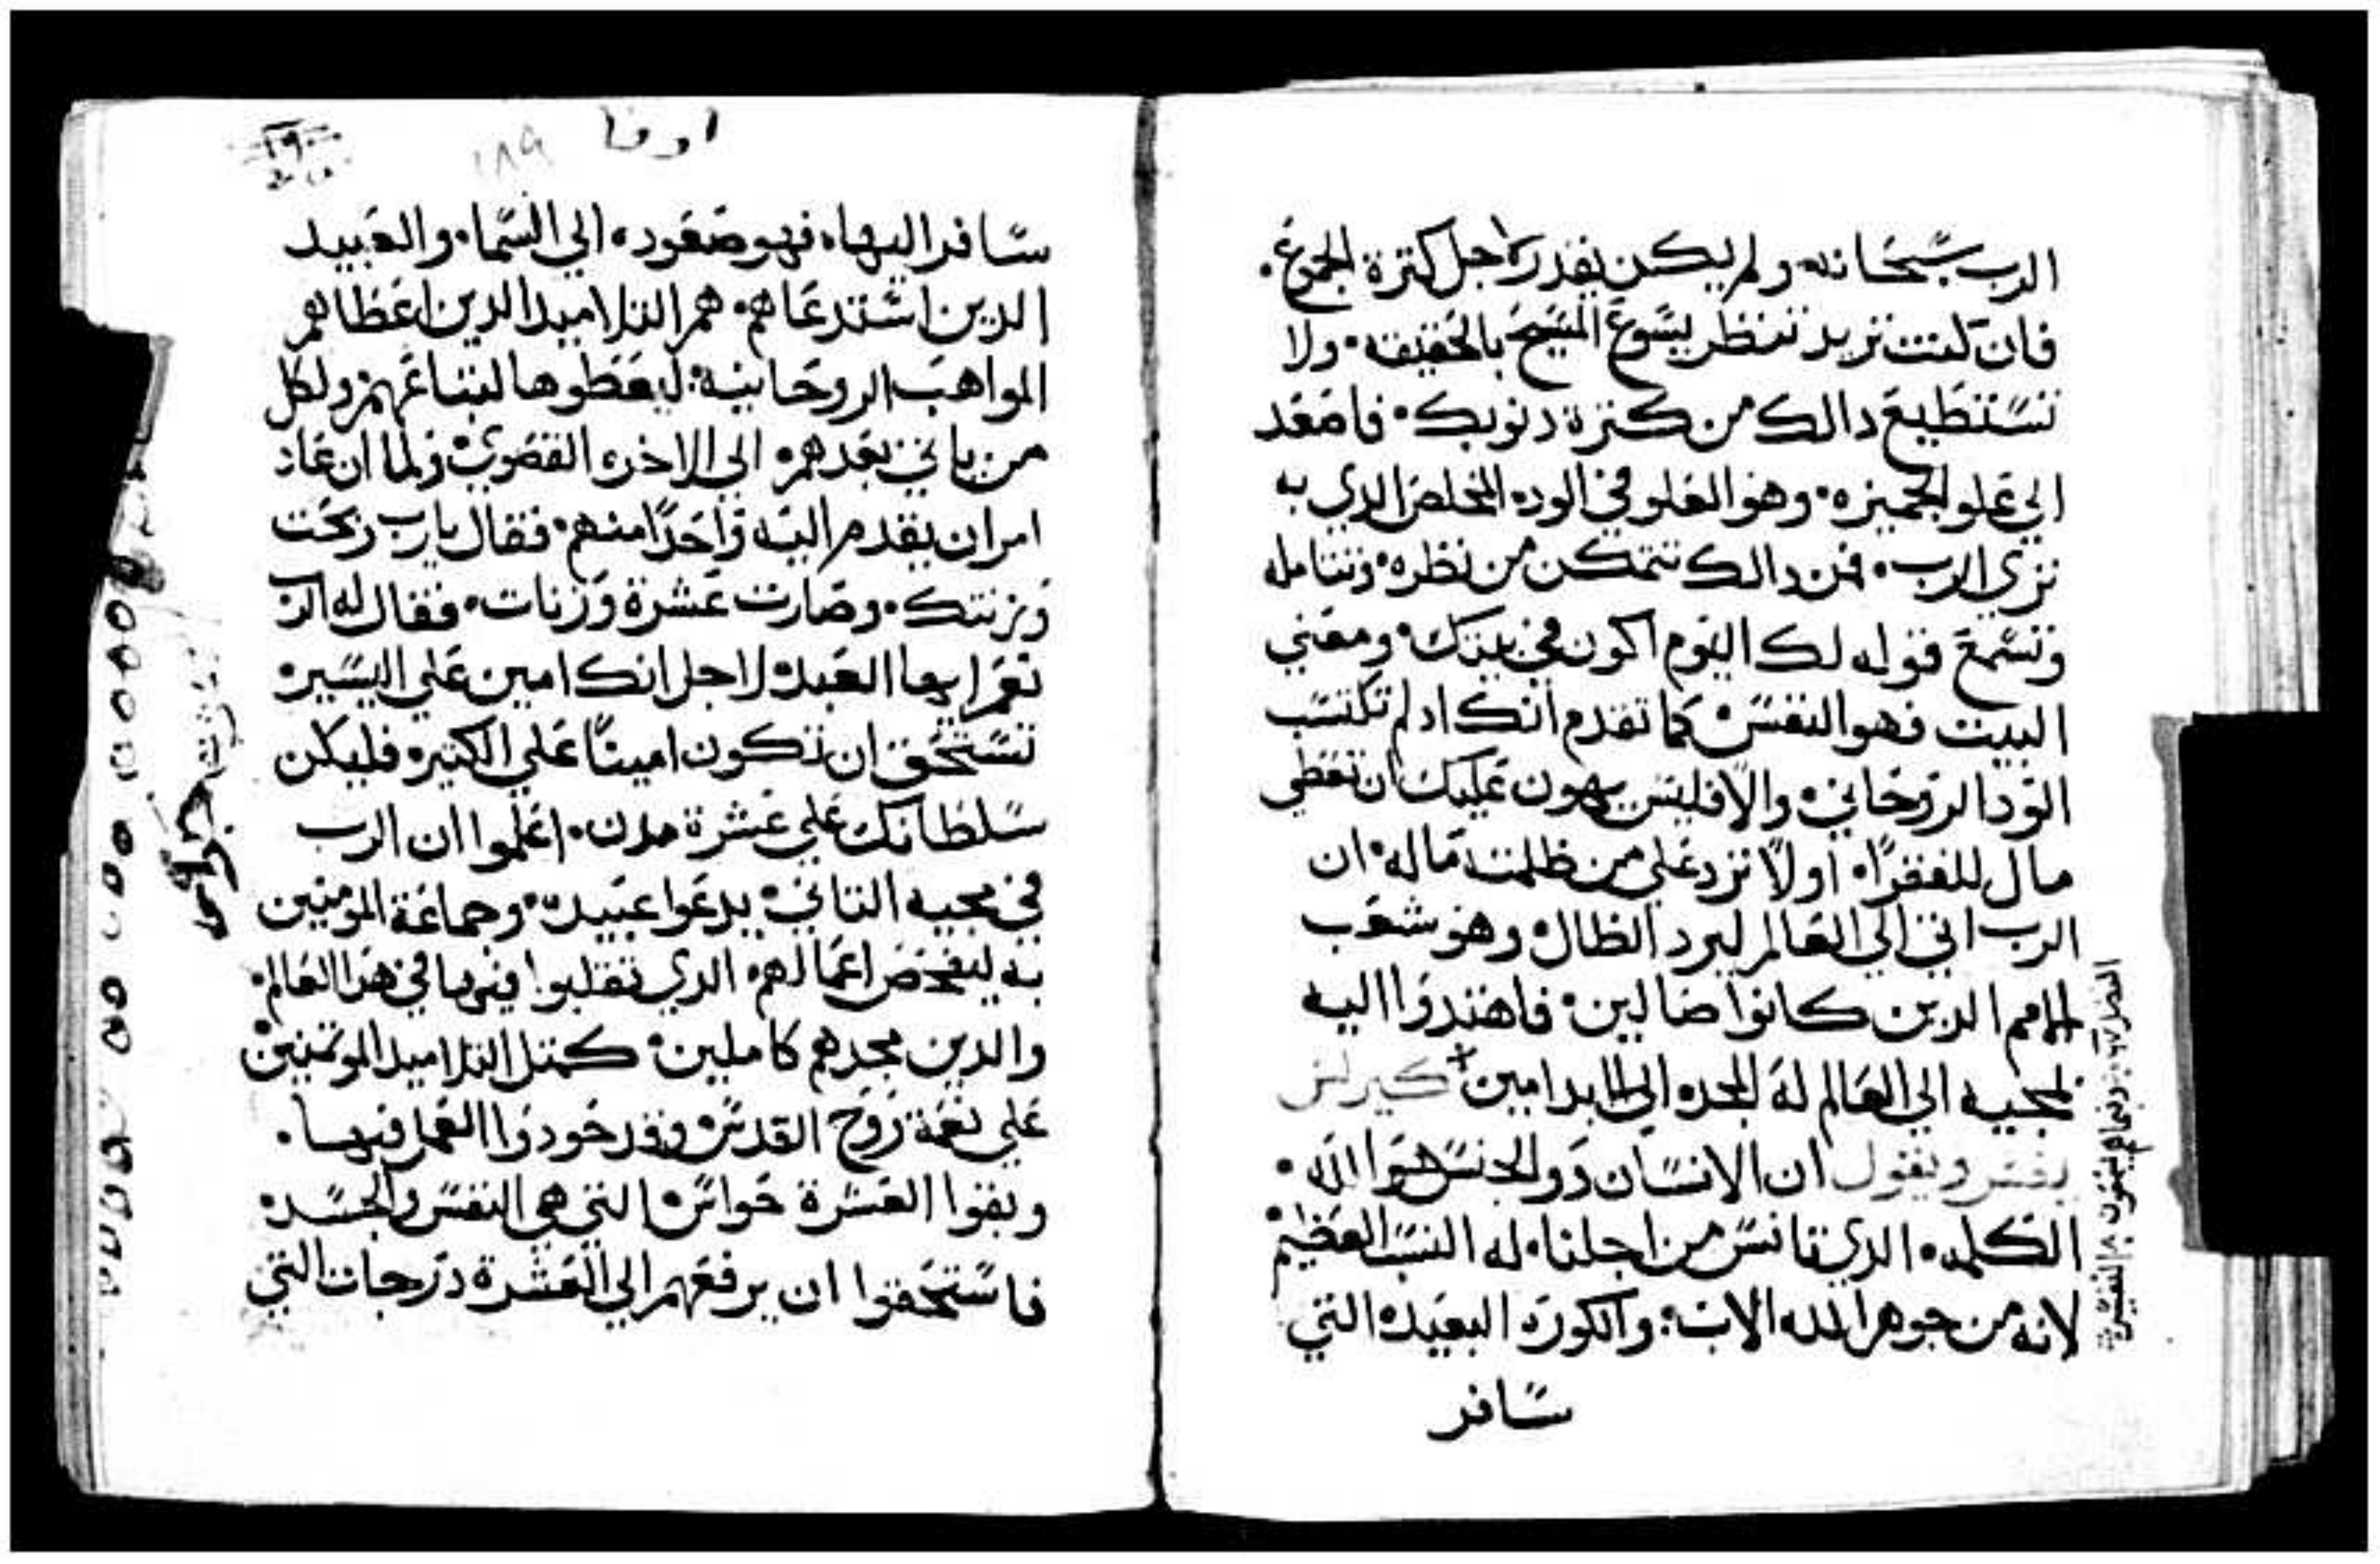 الرب سبحانه ولم يكن يقدر لاجل كترة الجموع.
فان كنت تريد تنظر يسوع المسيح بالحقيقه. ولا
تستطيع دالك من كترة دنوبك. فاصعد
الي علو الجميزه. وهو العلو في الوده المخلص الدي به
تري الرب. فمن دالك تتمكن من نظره. وتتامله
وتسمع قوله لك اليوم اكون في بيتك. ومعني
البيت فهو النفس. كما تقدم انك اد لم تكتسب
الود الروحاني. والا فليس يهون عليك ان تعطي
مال للفقرا. اولا ترد علي من ظلمته ماله. ان
الرب اتي الي العالم ليرد الظال. وهو شعب
الامم الدين كانوا ضالين. فاهتدوا اليه
لمجيه الي العالم له المجد الي الابد امين + كيرلس
يفسر ويقول ان الانسان دو الجنس هو الله.
الكلمه. الدي تانس من اجلنا. له النسب العظيم
لانه من جوهر الله الاب. والكورة البعيده التي
سافر
اوقا ١٨٩
سافر اليها. فهو صعوده الي السما. والعبيد
الدين استدعاهم. هم التلاميد الدين اعطاهم
المواهب الروحانيه. ليعطوها لتباعهم. ولكل
من ياتي بعدهم. الي الاخره القصوي. ولما ان عاد
امر ان يقدم اليه واحدا منهم. فقال يارب ربحت
وزنتك. وصارت عشرة وزنات. فقال له الرب
نعم ايها العبد. لاجل انك امين علي اليسير
تستحق ان تكون امينا علي الكتير. فليكن
سلطانك علي عشرة مدن. اعلموا ان الرب
في مجيه التاني. يدعوا عبيده. وجماعة المومنين
به ليفحص اعمالهم. الدي تقلبوا فيها في هدا العالم.
والدين يجدهم كاملين. كمتل التلاميد الموتمنين
علي نعمة روح القدس. وقد جودوا العمل فيها.
وبقوا العشرة حواس. التي هي النفس والجسد
فاستحقوا ان يرفعهم الي العشرة درجات التي